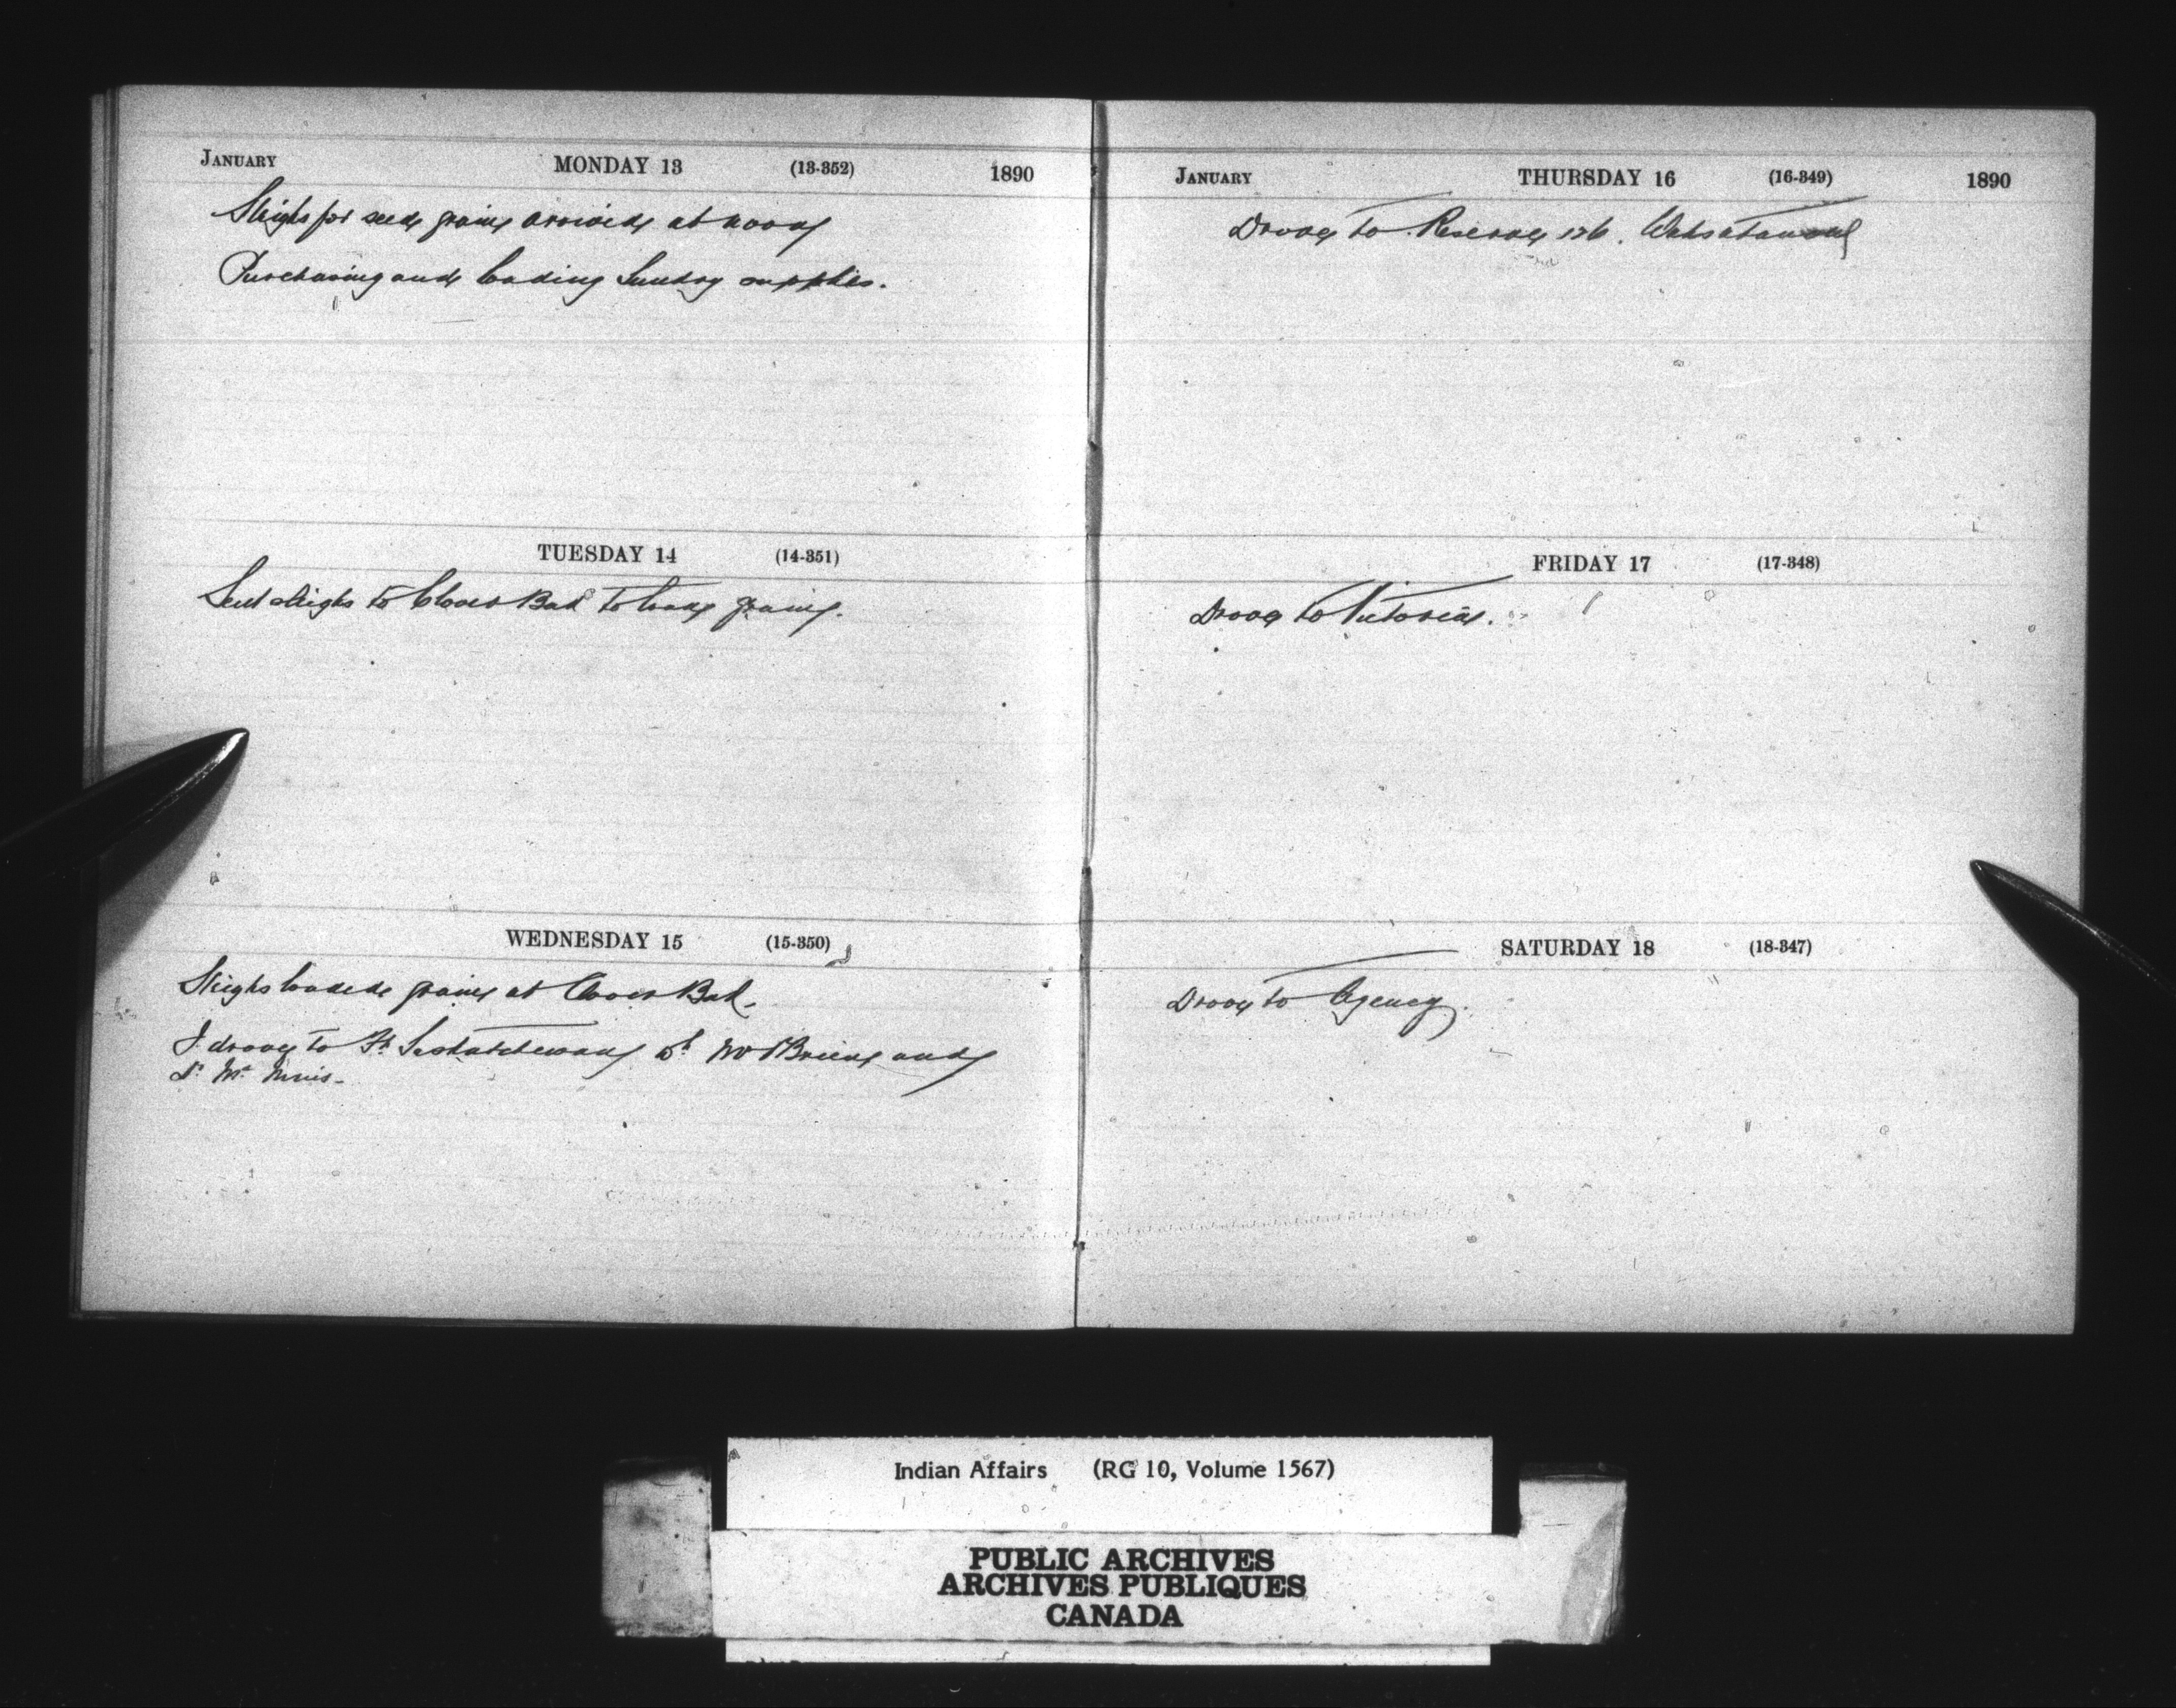 JANUARY MONDAY 13 (13-352) 1890
Sleighs for seed grain arrived at noon
Purchasing and loading Sundry supplies.
TUESDAY 14 (14-351)
Sent sleighs to Clover Bar to load grain.
WEDNESDAY 15 (15-350)
Sleighs loaded grain at Clover Bar.
I drove to Ft. Saskatchewan and
JANUARY THURSDAY 16 (16-349) 1890
Drove to Reserve 126. Wahsatanow
FRIDAY 17 (17-348)
Drove to Victoria.
SATURDAY 18 (18-347)
Drove to Agency.
Indian Affairs (RG 10, Volume 1567)
PUBLIC ARCHIVES
ARCHIVES PUBLIQUES
CANADA